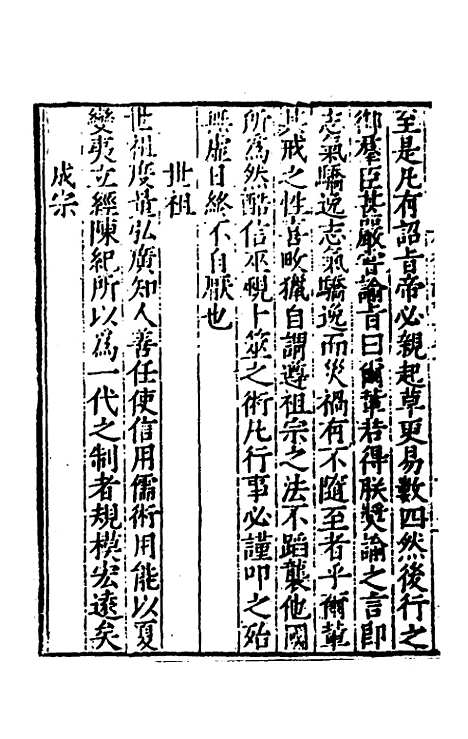 至是凡有詔旨帝必親起草更易數四然後行之
御羣臣甚嚴嘗諭旨曰爾輩若得朕奬諭之言即
志氣驕逸志氣驕逸而災禍有不隨至者乎爾輩
其戒之性喜畋獵自謂遵祖宗之法不蹈襲他國
所爲然酷信巫覡卜筮之術凡行事必謹叩之殆
無虛日終不自厭也
世祖
世祖度量弘廣知人善任使信用儒術用能以夏
變夷立經陳紀所以爲一代之制者規模宏遠矣
成宗